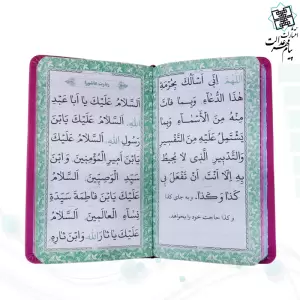 انتشارات
پیام عدالت
زیارت عاشورا
اَلسَّلامُ عَلَيْكَ يا اَبا عَبْدِ
اللهِ، اَلسَّلامُ عَلَيْكَ يَابْنَ
رَسُولِ اللهِ، اَلسَّلامُ عَلَيْكَ
يَابْنَ اَميرِ الْمُؤْمِنينَ وَ ابْنَ
سَيِّدِ الْوَصِيّينَ، اَلسَّلامُ
عَلَيْكَ يَابْنَ فاطِمَةَ سَيِّدَةِ
نِساءِ الْعالَمينَ، اَلسَّلامُ
عَلَيْكَ يا ثارَ اللهِ وَ ابْنَ ثارِهِ
اَللّهُمَّ اِنّى اَسْاَلُكَ بِحُرْمَةِ
هٰذَا الدُّعآءِ وَ بِما فاتَ
مِنْهُ مِنَ الْاَسْمآءِ وَ بِما
يَشْتَمِلُ عَلَيْهِ مِنَ التَّفْسيرِ
وَالتَّدْبيرِ الَّذى لا يُحيطُ
بِهِ اِلّا اَنْتَ اَنْ تَفْعَلَ بى
كَذا وَ كَذا، و به جای کذا
و کذا حاجت خود را بخواهد.